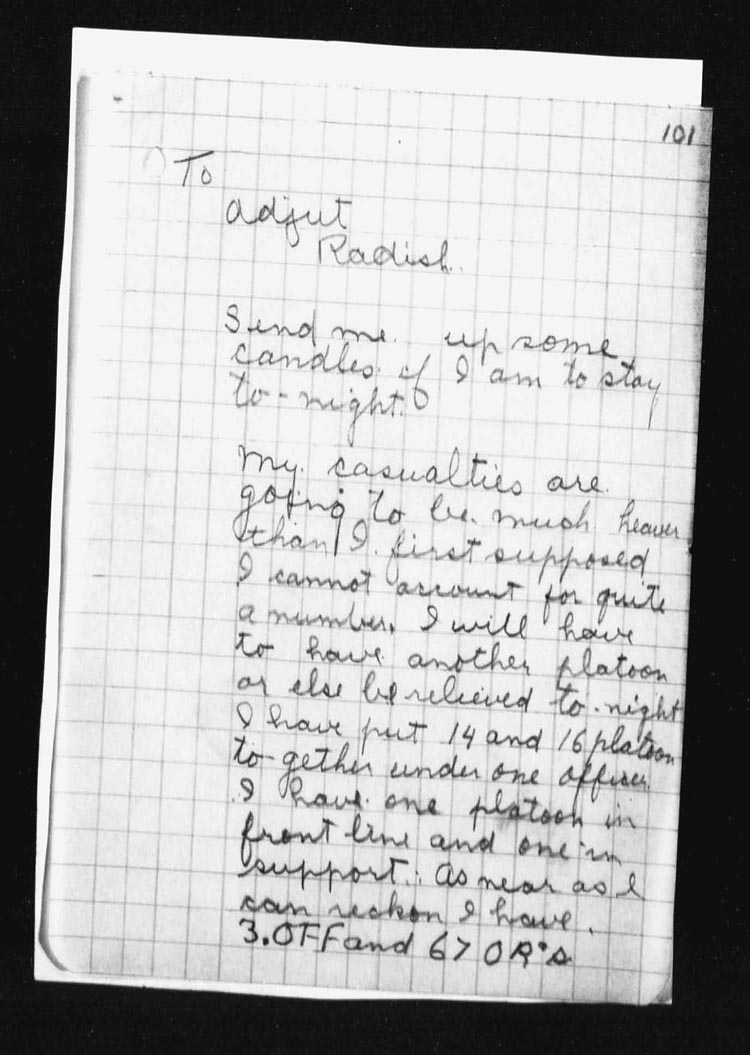 101
To
Adjut
Radish.
Send me. up some
candles. if I am to stay
to-night.
My. casualties are.
going to be. much heaver
than I. first supposed
I cannot account for quite
a number. I will have
to have another platoon
or else be relieved to-night
I have put 14 and 16 platoon
to-gether under one officer
I have one platoon in
front line and one in
support. As near as I
can reckon I have.
3. OFF and 67 OR's